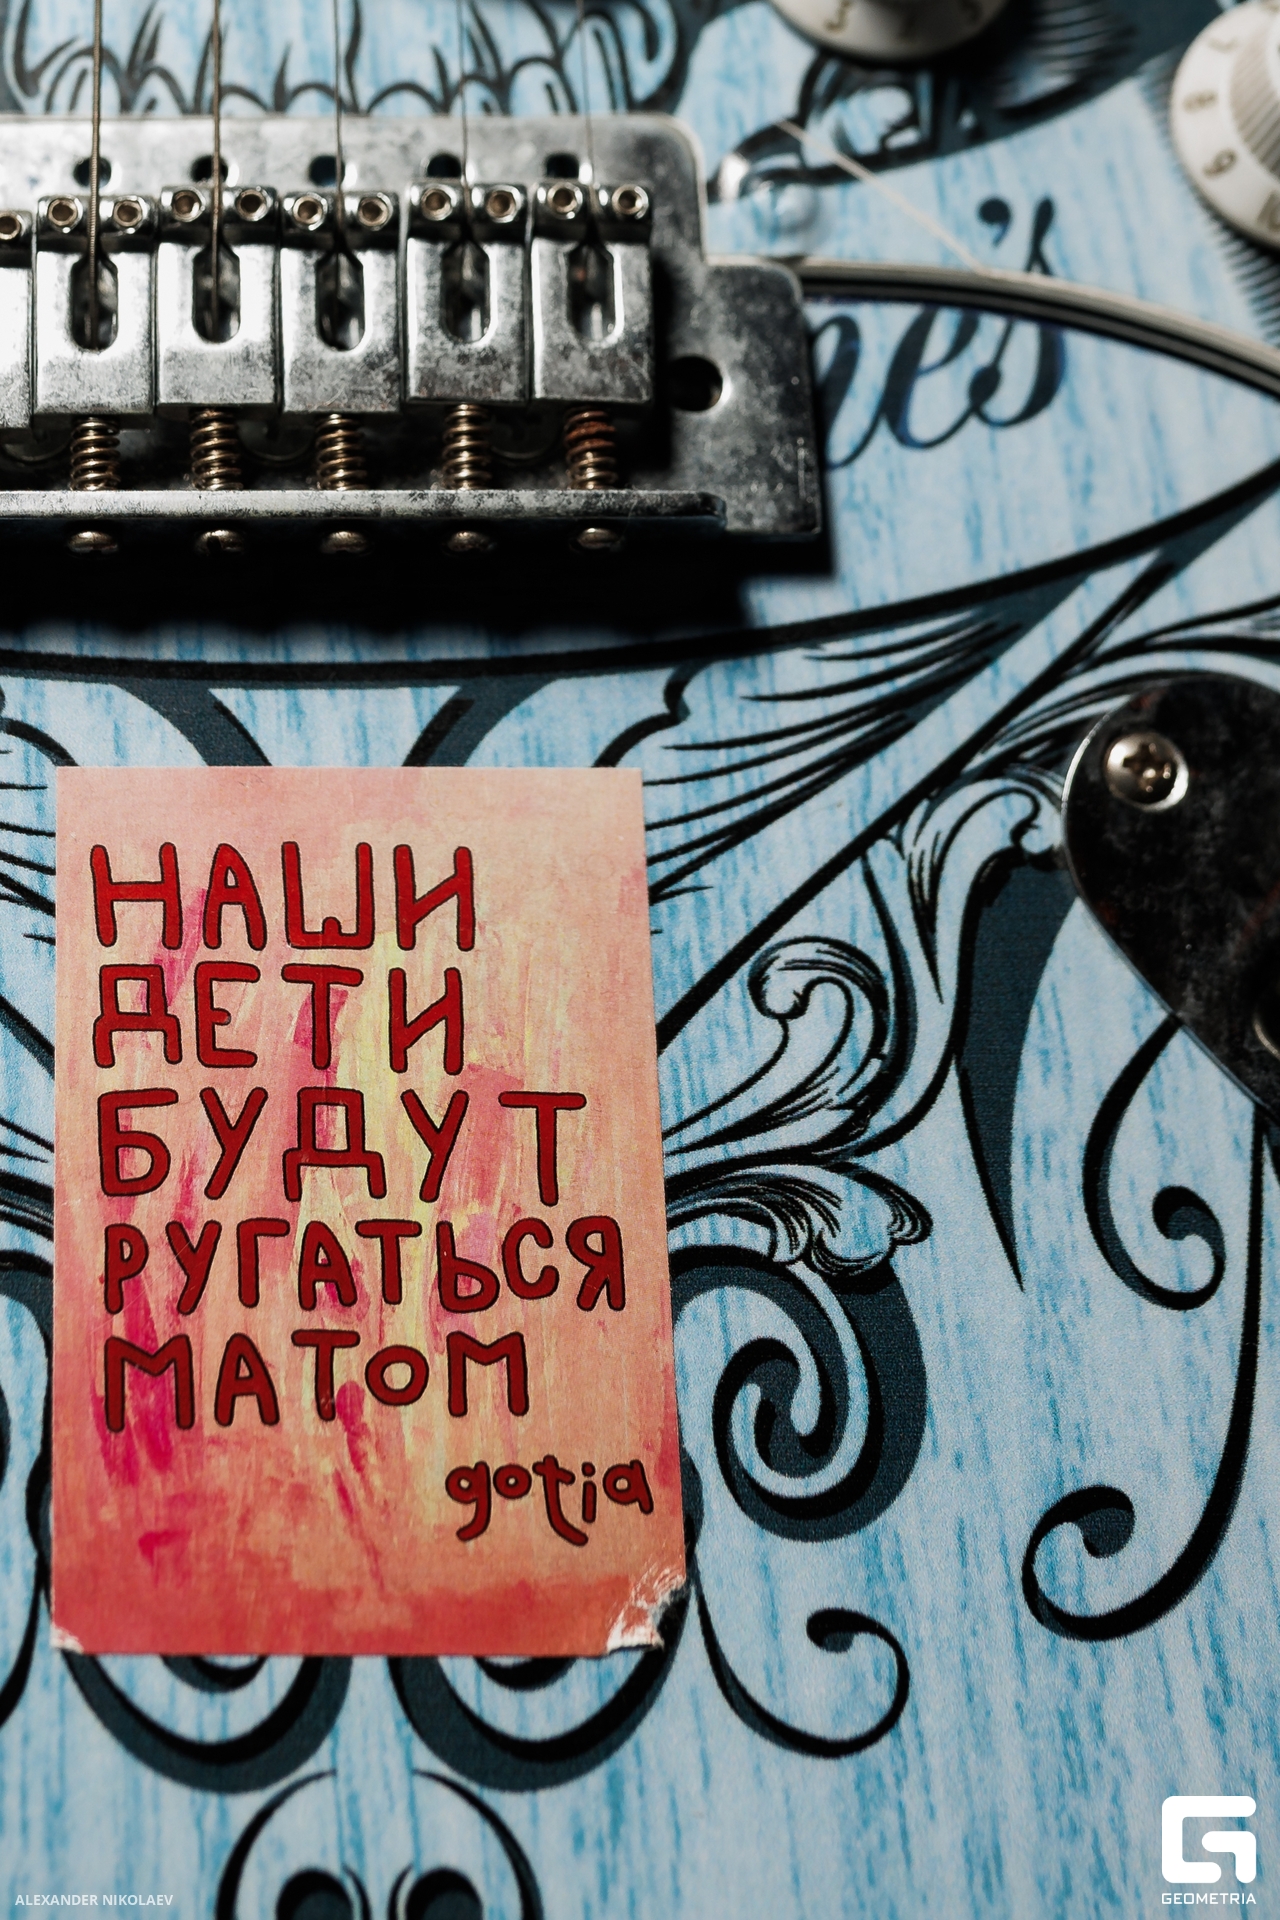 НАШИ
ДЕТИ
БУДУТ
РУГАТЬСЯ
МАТОМ
gotia
ALEXANDER NIKOLAEV
GEOMETRIA